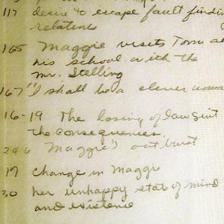 117 desire to escape fault finding
relations
165 Maggie visits Tom at
his school with the
Mr. Stelling
167 "I shall be a clever woman
16-19 The losing of lawsuit
the consequences.
246 Maggie's outburst
19 change in Maggie
30 her unhappy state of mind
and existence